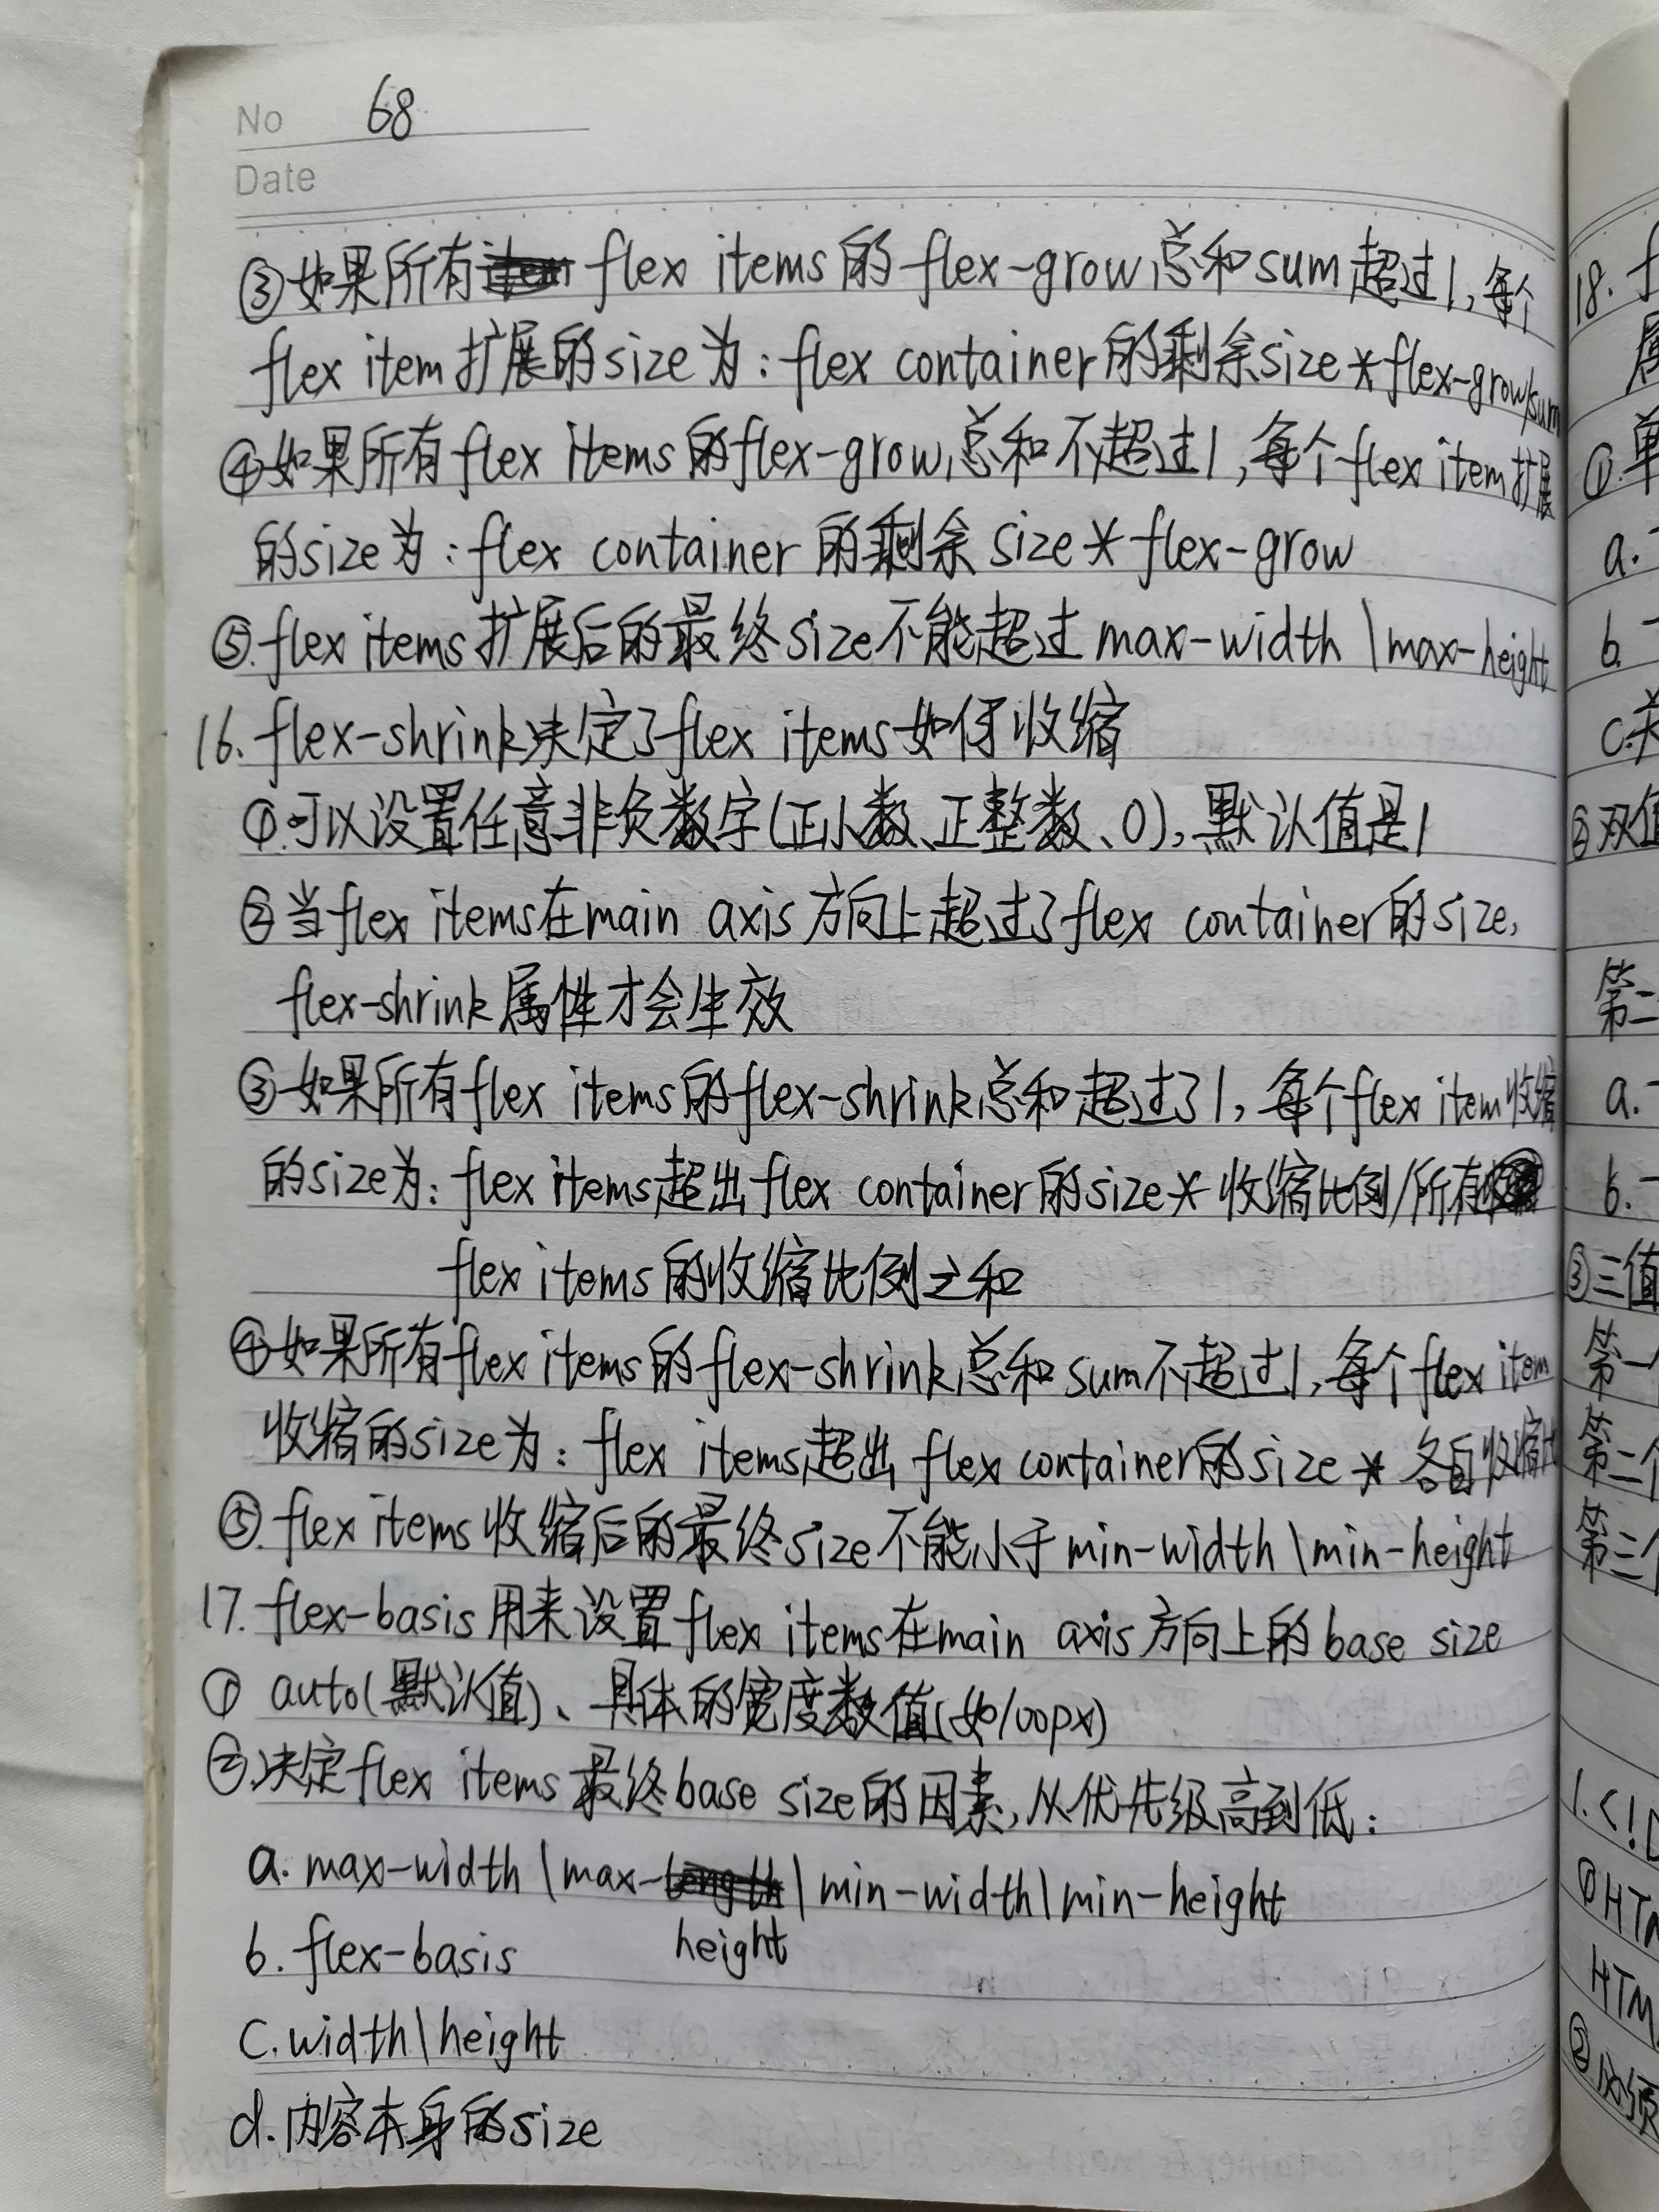 No 68
Date
③如果所有 flex items的flex-grow总和sum超过1,每个
flex item扩展的size为:flex container的剩余size*flex-grow/sum
④如果所有flex items的flex-grow总和不超过1,每个flex item扩展
的size为:flex container的剩余size*flex-grow
⑤.flex items扩展后的最终size不能超过max-width\max-height
16.flex-shrink决定了flex items如何收缩
①.可以设置任意非负数字(正小数、正整数、0),默认值是1
②当flex items在main axis方向上超过了flex container的size,
flex-shrink属性才会生效
③如果所有flex items的flex-shrink总和超过了1,每个flex item收缩
的size为:flex items超出flex container的size*收缩比例/所有
flex items的收缩比例之和
④如果所有flex items的flex-shrink总和sum不超过1,每个flex item
收缩的size为:flex items超出flex container的size*各自收缩比
⑤.flex items收缩后的最终size不能小于min-width\min-height
17.flex-basis用来设置flex items在main axis方向上的base size
① auto(默认值)、具体的宽度数值(如100px)
②.决定flex items最终base size的因素,从优先级高到低:
a. max-width\max-height\min-width\min-height
b.flex-basis
c.width\height
d.内容本身的size
18. f
①.单
a.
b.
c.
②双值
第二
a.
b.
③三值
第一
第二个
第三个
1.<!D
①HTM
HTM
②必须